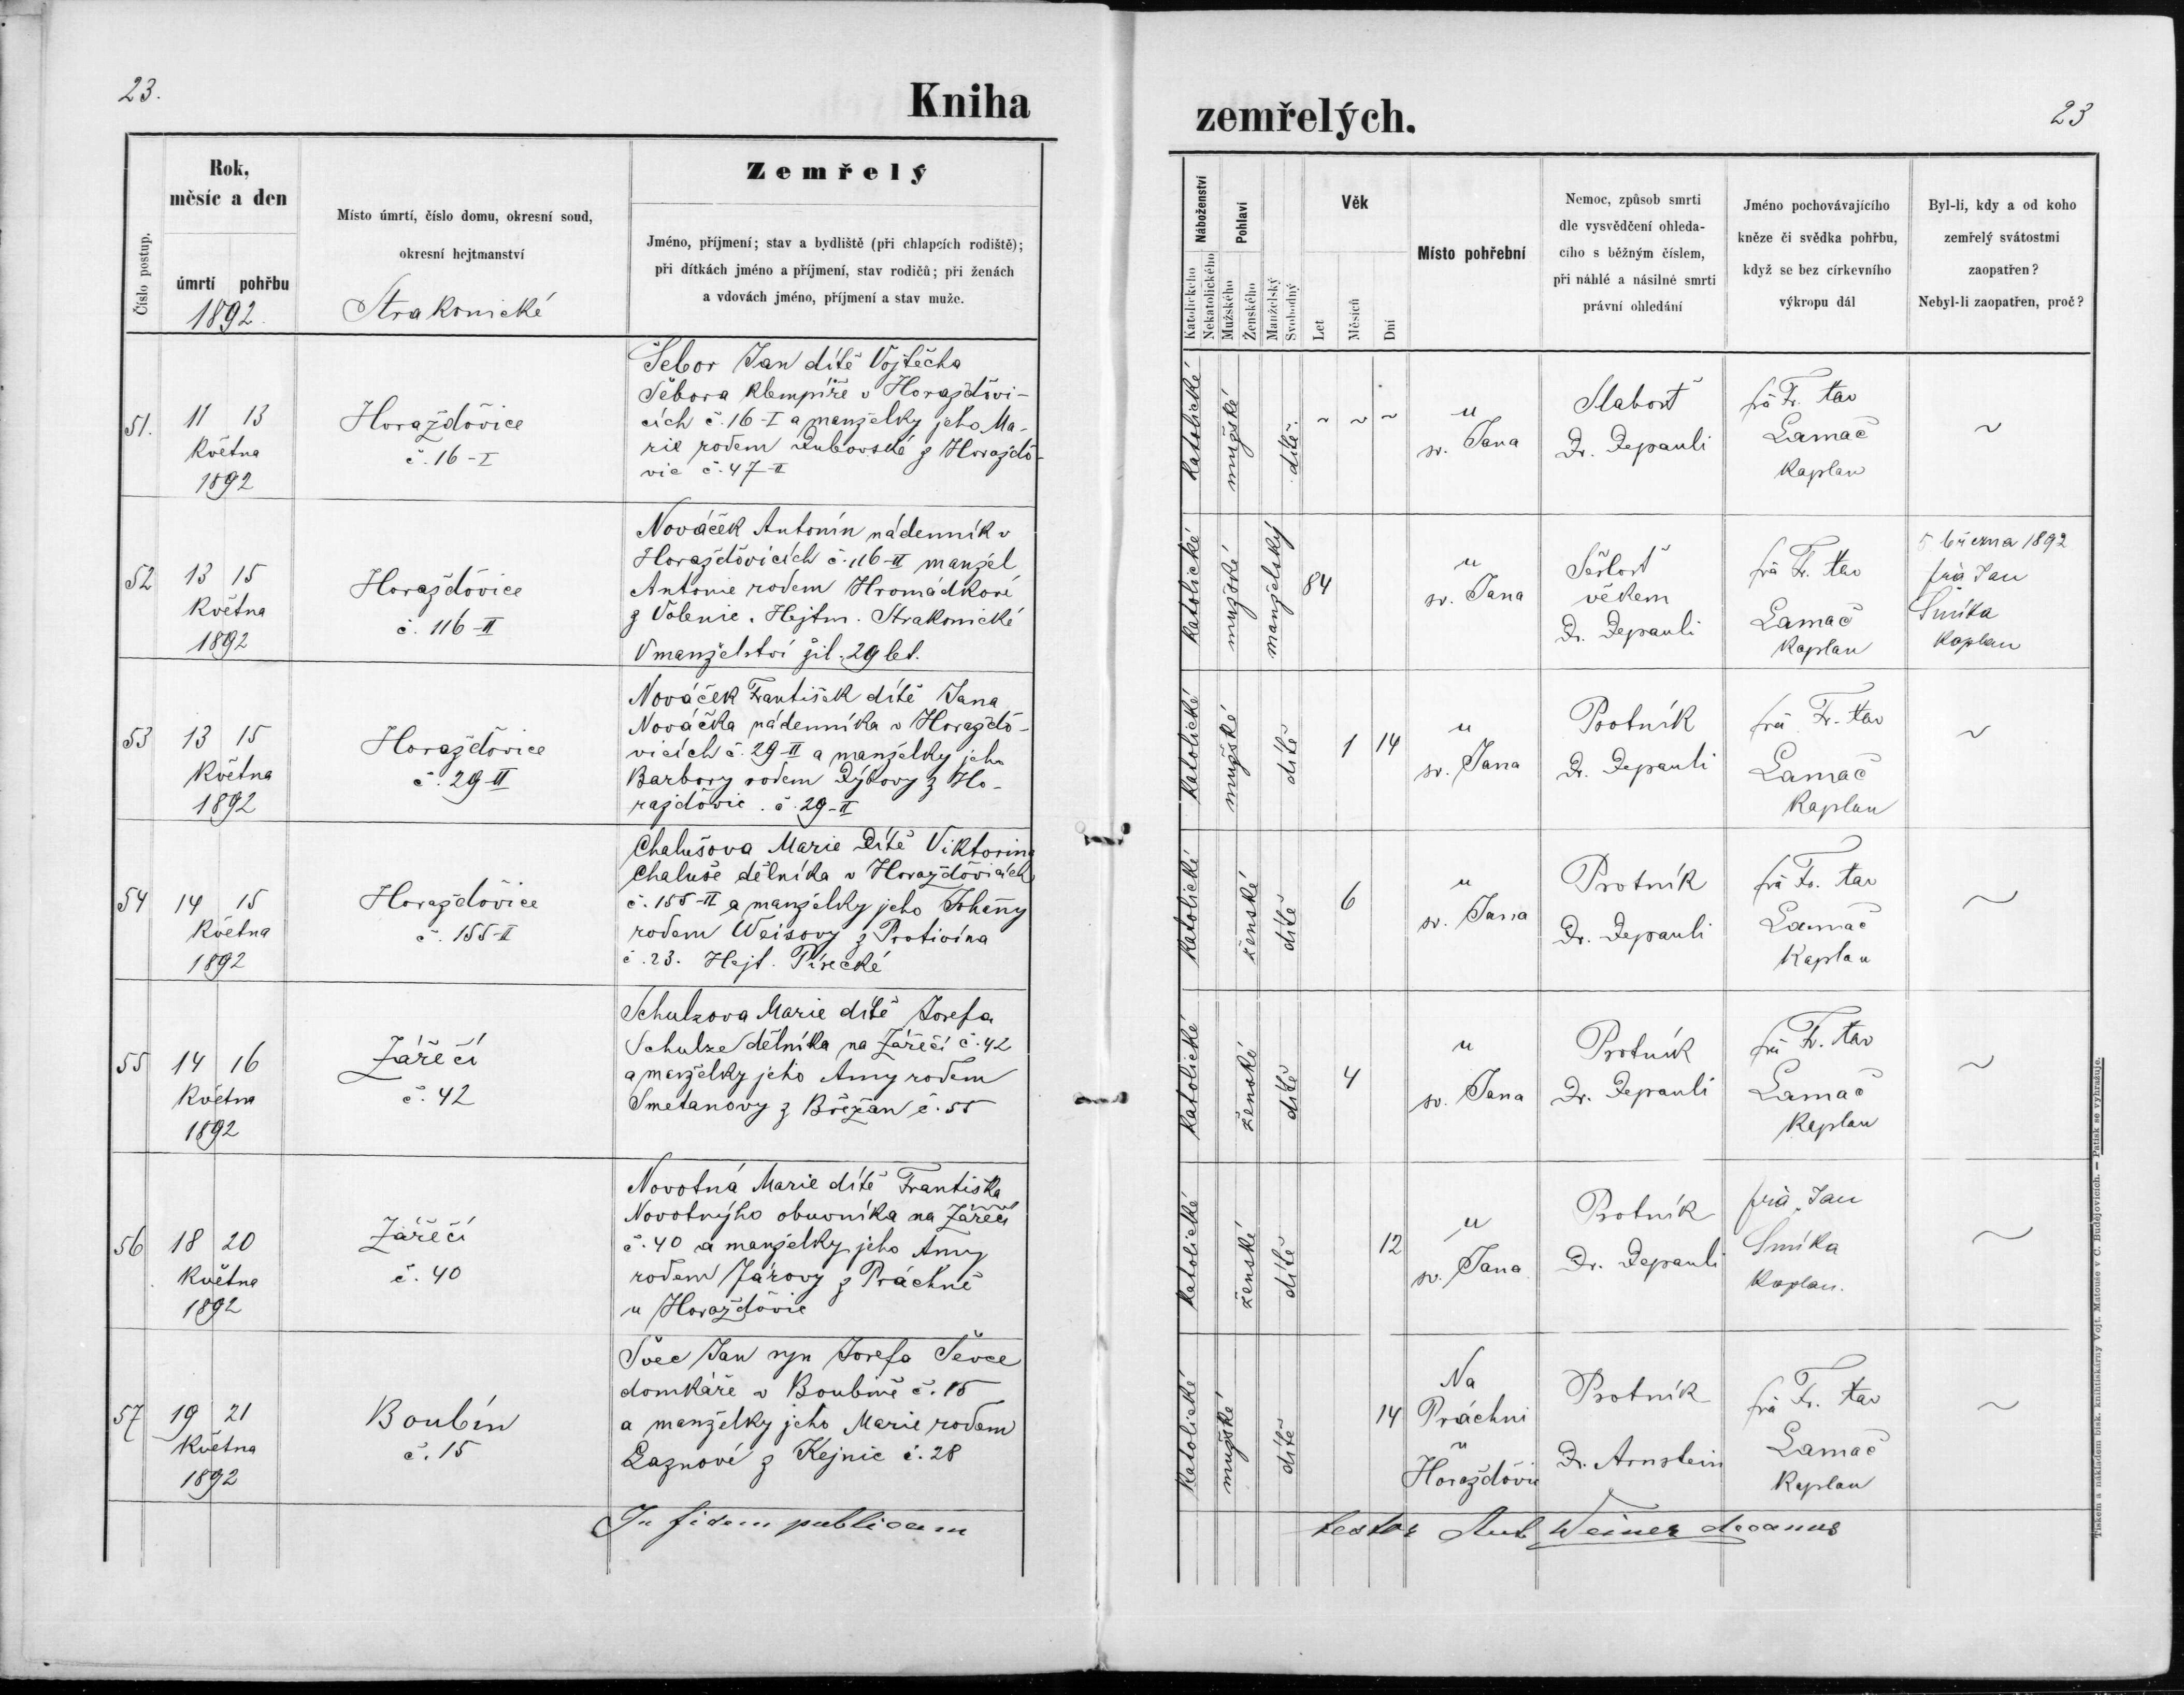 23.
Kniha
Číslo postup.
Rok,
měsíc a den
úmrtí pohřbu
1892
Místo úmrtí, číslo domu, okresní soud,
okresní hejtmanství
Strakonické
Zemřelý
Jméno, příjmení; stav a bydliště (při chlapcích rodiště);
při dítkách jméno a příjmení, stav rodičů; při ženách
a vdovách jméno, příjmení a stav muže.
51.
11 13
Května
1892
Horažďovice
č. 16-I
Šebor Jan dítě Vojtěcha
Šebora klempíře v Horažďovi-
cích č. 16-I a manželky jeho Ma-
rie rodem Dubovské z Horažďo-
vic č. 47-II
52
13 15
Května
1892
Horažďovice
č. 116-II
Nováček Antonín nádenník v
Horažďovicích č. 116-II manžel
Antonie rodem Hromádkové
z Volenic. Hejtm. Strakonické
V manželství žil. 29 let.
53
13 15
Května
1892
Horažďovice
č. 29-II
Nováček František dítě Jana
Nováčka nádenníka v Horažďo-
vicích č. 29-II a manželky jeho
Barbory rodem Dýbovy z Ho-
ražďovic. č. 29-II
54
14 15
Května
1892
Horažďovice
č. 155-II
Chalušova Marie Dítě Viktorina
Chaluše dělníka v Horažďovicích
č. 155-II a manželky jeho Johany
rodem Weisovy z Protivína
č. 23. Hejt. Písecké
55
14 16
Května
1892
Zářečí
č. 42
Schulzova Marie dítě Josefa
Schulze dělníka na Zářečí č. 42
a manželky jeho Anny rodem
Smetanovy z Břežan č. 55
56
18 20
Května
1892
Zářečí
č. 40
Novotná Marie dítě Františka
Novotnýho obuvníka na Zářečí
č. 40 a manželky jeho Anny
rodem Járovy z Práchně
u Horažďovic
57
19 21
Května
1892
Boubín
č. 15
Švec Jan syn Josefa Ševce
domkáře v Boubíně č. 15
a manželky jeho Marie rodem
Laznové z Kejnic č. 28
In fidem publicam
zemřelých.
23
Náboženství
Katolického
Nekatolického
Pohlaví
Mužského
Ženského
Manželský
Svobodný
Věk
Let
Měsíců
Dní
Místo pohřební
Nemoc, způsob smrti
dle vysvědčení ohleda-
cího s běžným číslem,
při náhlé a násilné smrti
právní ohledání
Jméno pochovávajícího
kněze či svědka pohřbu,
když se bez církevního
výkropu dál
Byl-li, kdy a od koho
zemřelý svátostmi
zaopatřen?
Nebyl-li zaopatřen, proč?
katolické
mužské
dítě
~ ~ ~
u
sv. Jana
Slabost
Dr. Depauli
Fr.
Lamač
kaplan
~
katolické
mužské
manželský
84
u
sv. Jana
Sešlost
věkem
Dr. Depauli
Fr.
Lamač
kaplan
5 března 1892
Jan
Smíka
kaplan
katolické
mužské
dítě
1 14
u
sv. Jana
Psotník
Dr. Depauli
Fr.
Lamač
kaplan
~
katolické
ženské
dítě
6
u
sv. Jana
Psotník
Dr. Depauli
Fr.
Lamač
kaplan
~
katolické
ženské
dítě
4
u
sv. Jana
Psotník
Dr. Depauli
Fr.
Lamač
kaplan
~
katolické
ženské
dítě
12
u
sv. Jana
Psotník
Dr. Depauli
Jan
Smíka
kaplan.
~
katolické
mužské
dítě
14
Na
Práchni
u
Horažďovic
Psotník
Dr. Arnstein
Fr.
Lamač
kaplan
~
testor Ant Weiner decanus
Tiskem a nákladem bisk. knihtiskárny Vojt. Matouše v C. Budějovicích. — Patisk se vyhražuje.